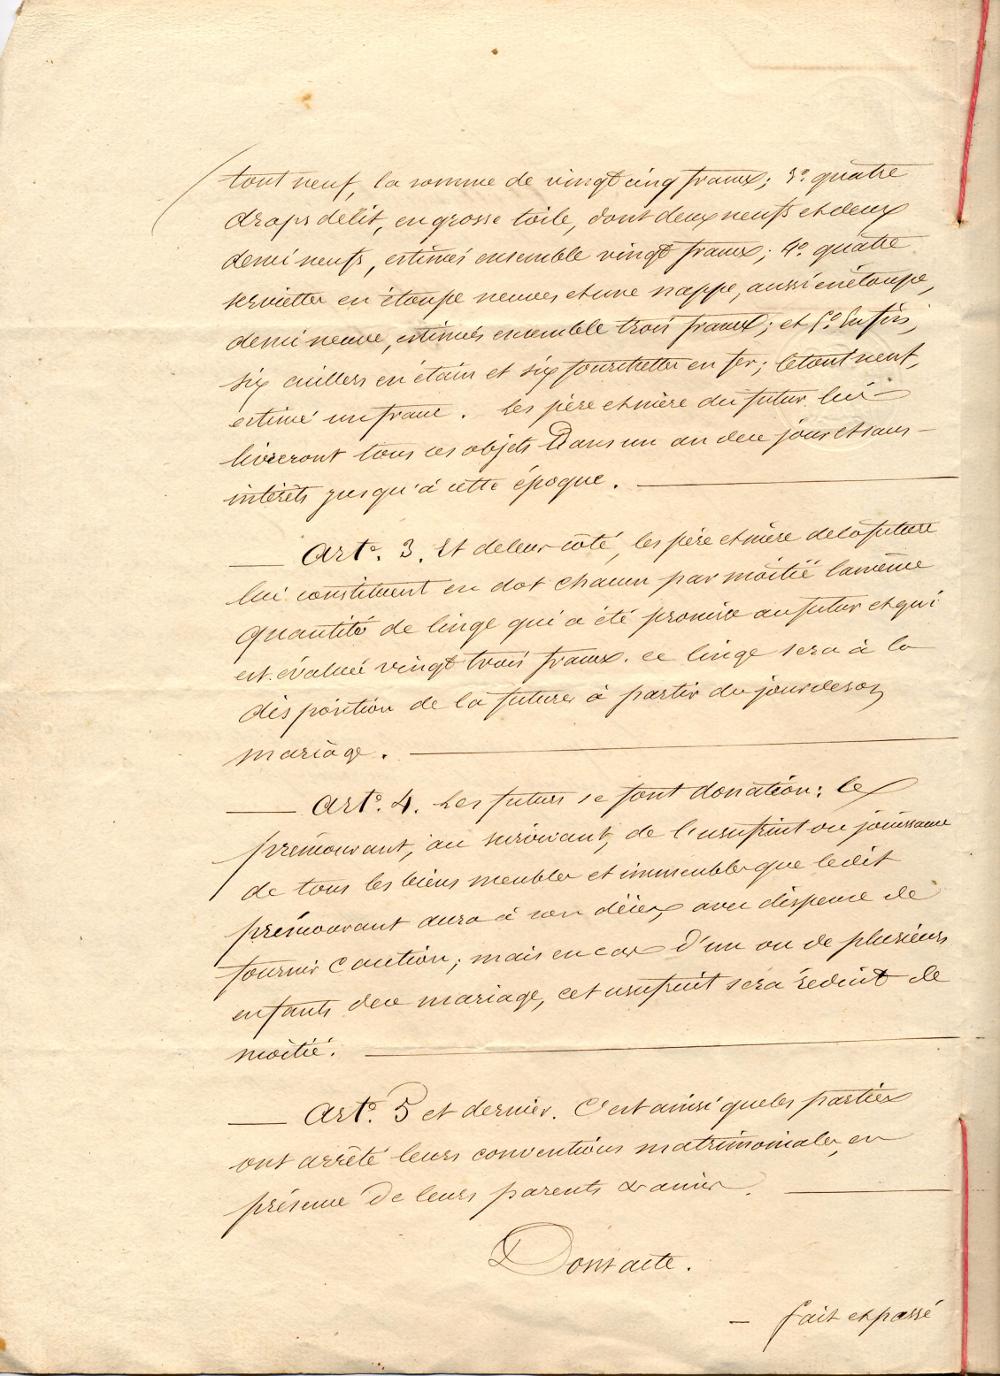 tout neuf, la somme de vingt cinq francs; 3.° quatre
draps de lit, en grosse toile, dont deux neufs et deux
demi neufs, estimés ensemble vingt francs; 4.° quatre
serviettes en étoupe neuves et une nappe, aussi en étoupe,
demi neuve, estimés ensemble trois francs; et 5.° Enfin,
six cuillers en étain et six fourchettes en fer; le tout neuf,
estimé un franc. Les père et mère du futur lui
livreront tous ces objets Dans un an de ce jour et sans
intérêts jusqu'à cette époque.
Art.° 3. Et de leur côté, les père et mère de la future
lui constituent en dot chacun par moitié la même
quantité de linge qui a été promise au futur et qui
est évalué vingt trois francs. ce linge sera à la
disposition de la future à partir du jour de son
mariage.
Art.° 4. Les futurs se font donation: le
prémourant, au survivant, de l'usufruit ou jouissance
de tous les biens meubles et immeubles que le dit
prémourant aura à son décès, avec dispense de
fournir caution; mais en cas d'un ou de plusieurs
enfants de ce mariage, cet usufruit sera réduit de
moitié.
Art.° 5 et dernier. C'est ainsi que les parties
ont arrêté leurs conventions matrimoniales, en
présence de leurs parents & amis.
Dont acte.
– fait et passé